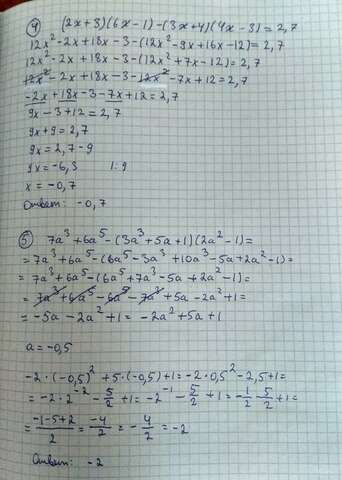 ④ (2x+3)(6x-1)-(3x+4)(4x-3)=2,7
12x²-2x+18x-3-(12x²-9x+16x-12)=2,7
12x²-2x+18x-3-(12x²+7x-12)=2,7
12x²-2x+18x-3-12x²-7x+12=2,7
-2x+18x-3-7x+12=2,7
9x-3+12=2,7
9x+9=2,7
9x=2,7-9
9x=-6,3 |:9
x=-0,7
Ответ: -0,7
⑤ 7a³+6a⁵-(3a³+5a+1)(2a²-1)=
=7a³+6a⁵-(6a⁵-3a³+10a³-5a+2a²-1)=
=7a³+6a⁵-(6a⁵+7a³-5a+2a²-1)=
=7a³+6a⁵-6a⁵-7a³+5a-2a²+1=
=-5a-2a²+1=-2a²+5a+1
a=-0,5
-2·(-0,5)²+5·(-0,5)+1=-2·0,5²-2,5+1=
=-2·2⁻²-5/2+1=-2⁻¹-5/2+1=-1/2-5/2+1=
=(-1-5+2)/2=-4/2=-4/2=-2
Ответ: -2